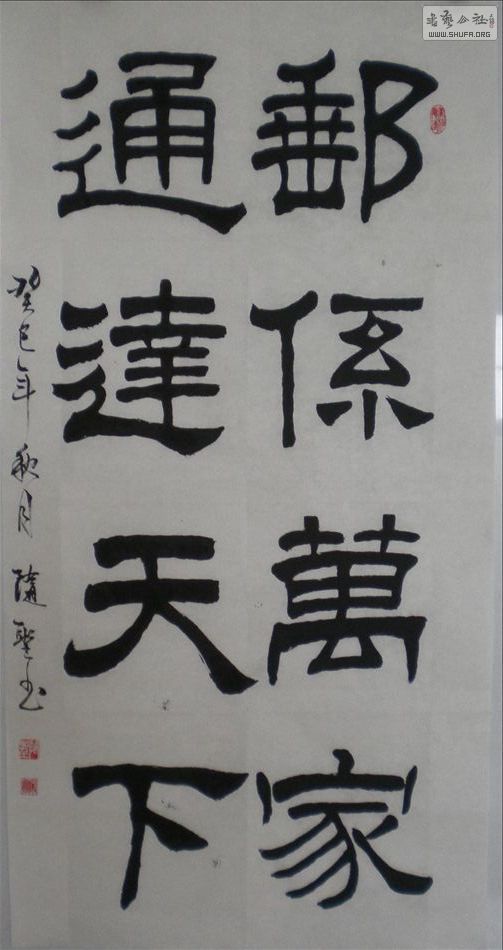 郵係萬家
通達天下
癸巳年秋月隨聖书
書藝公社
WWW.SHUFA.ORG